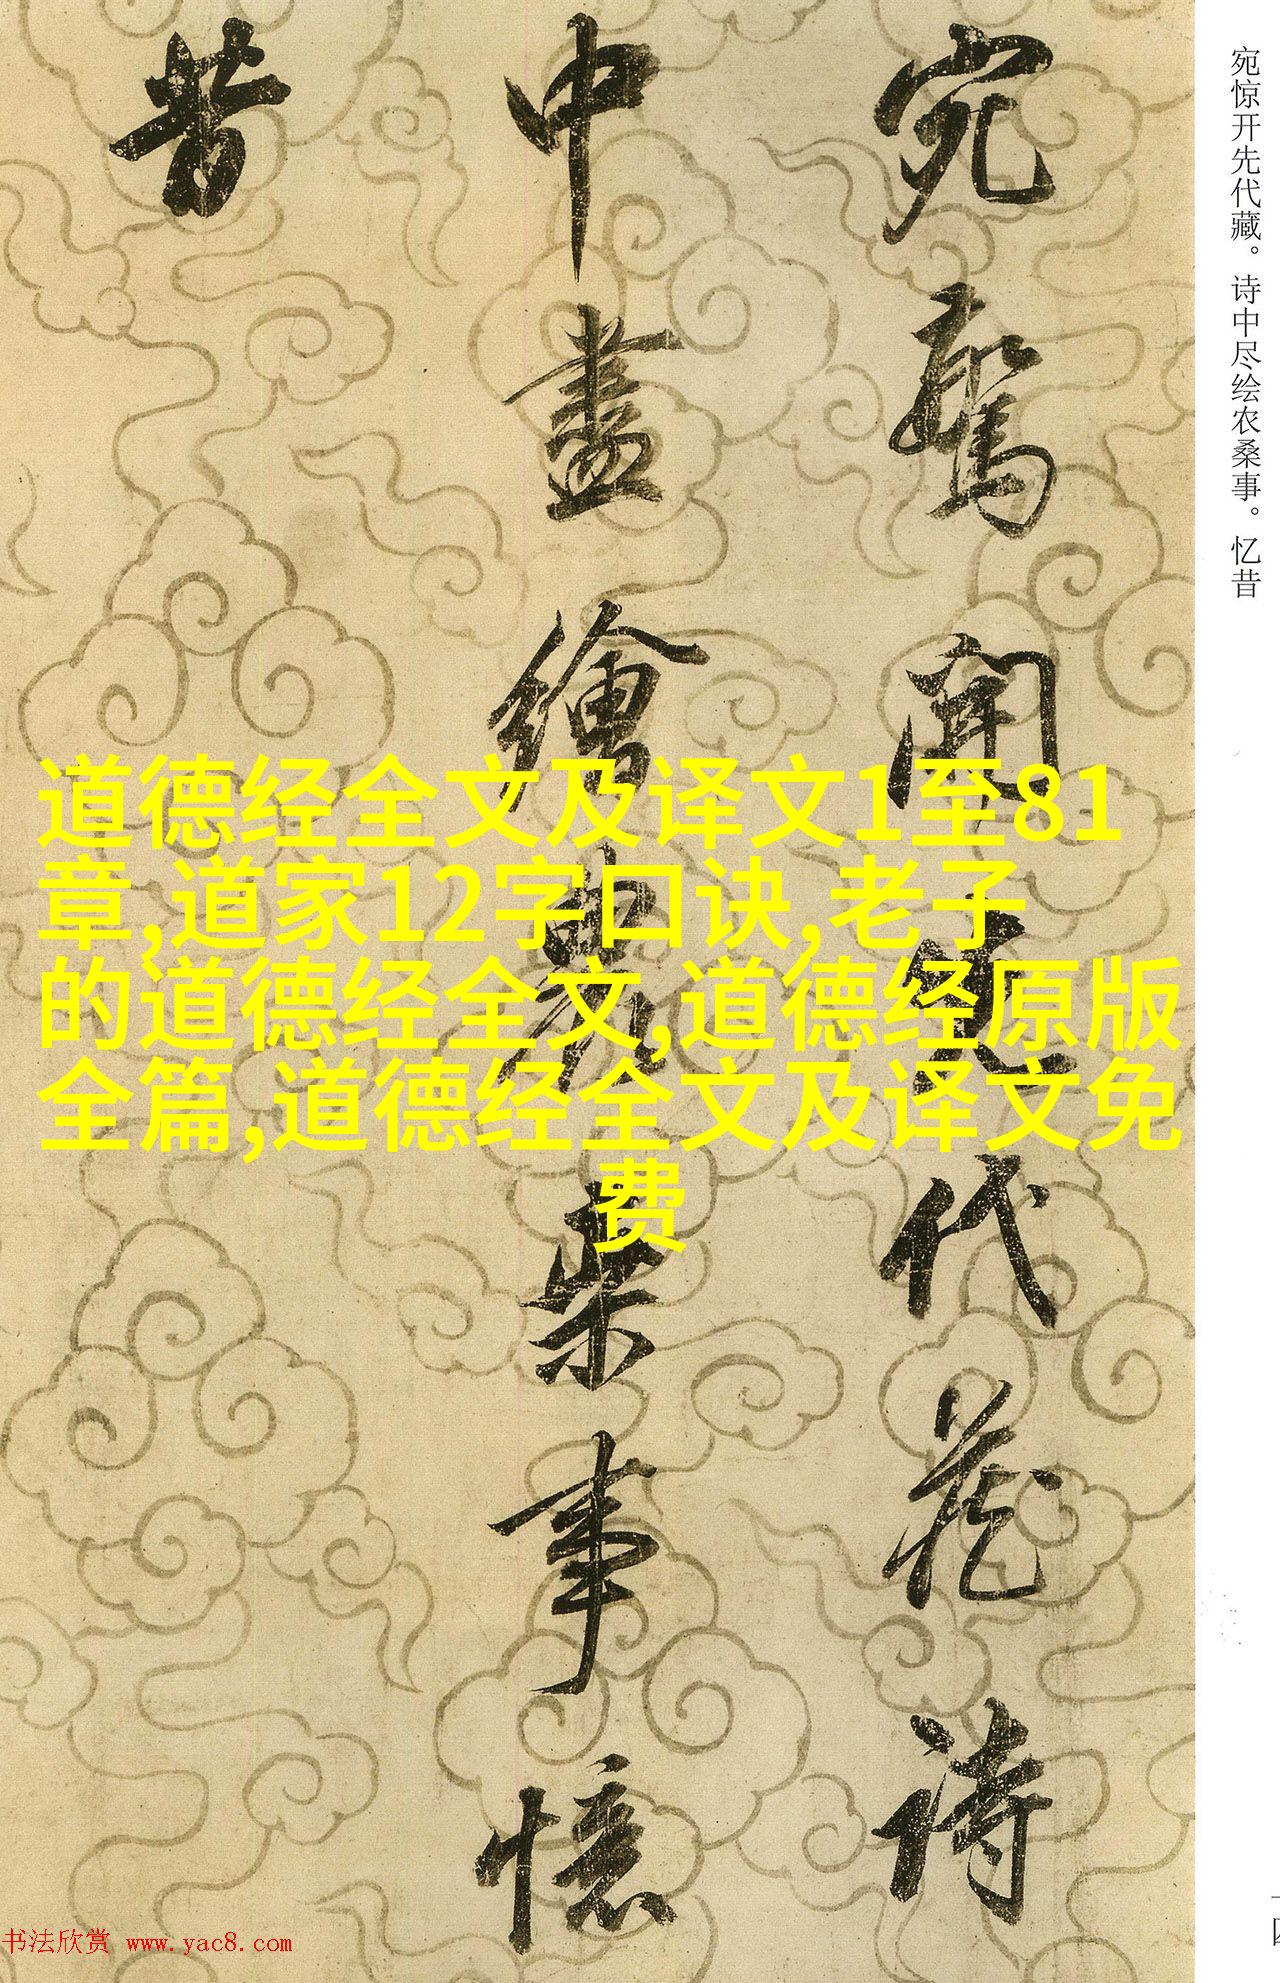 宛驚開先代藏詩
中盡繪農桒事憶
昔
宛惊开先代藏。诗中尽绘农桑事。忆昔
道德经全文及译文1至81
章,道家12字口诀,老子
的道德经全文,道德经原版
全篇,道德经全文及译文免
费
书法欣赏 www.yac8.com